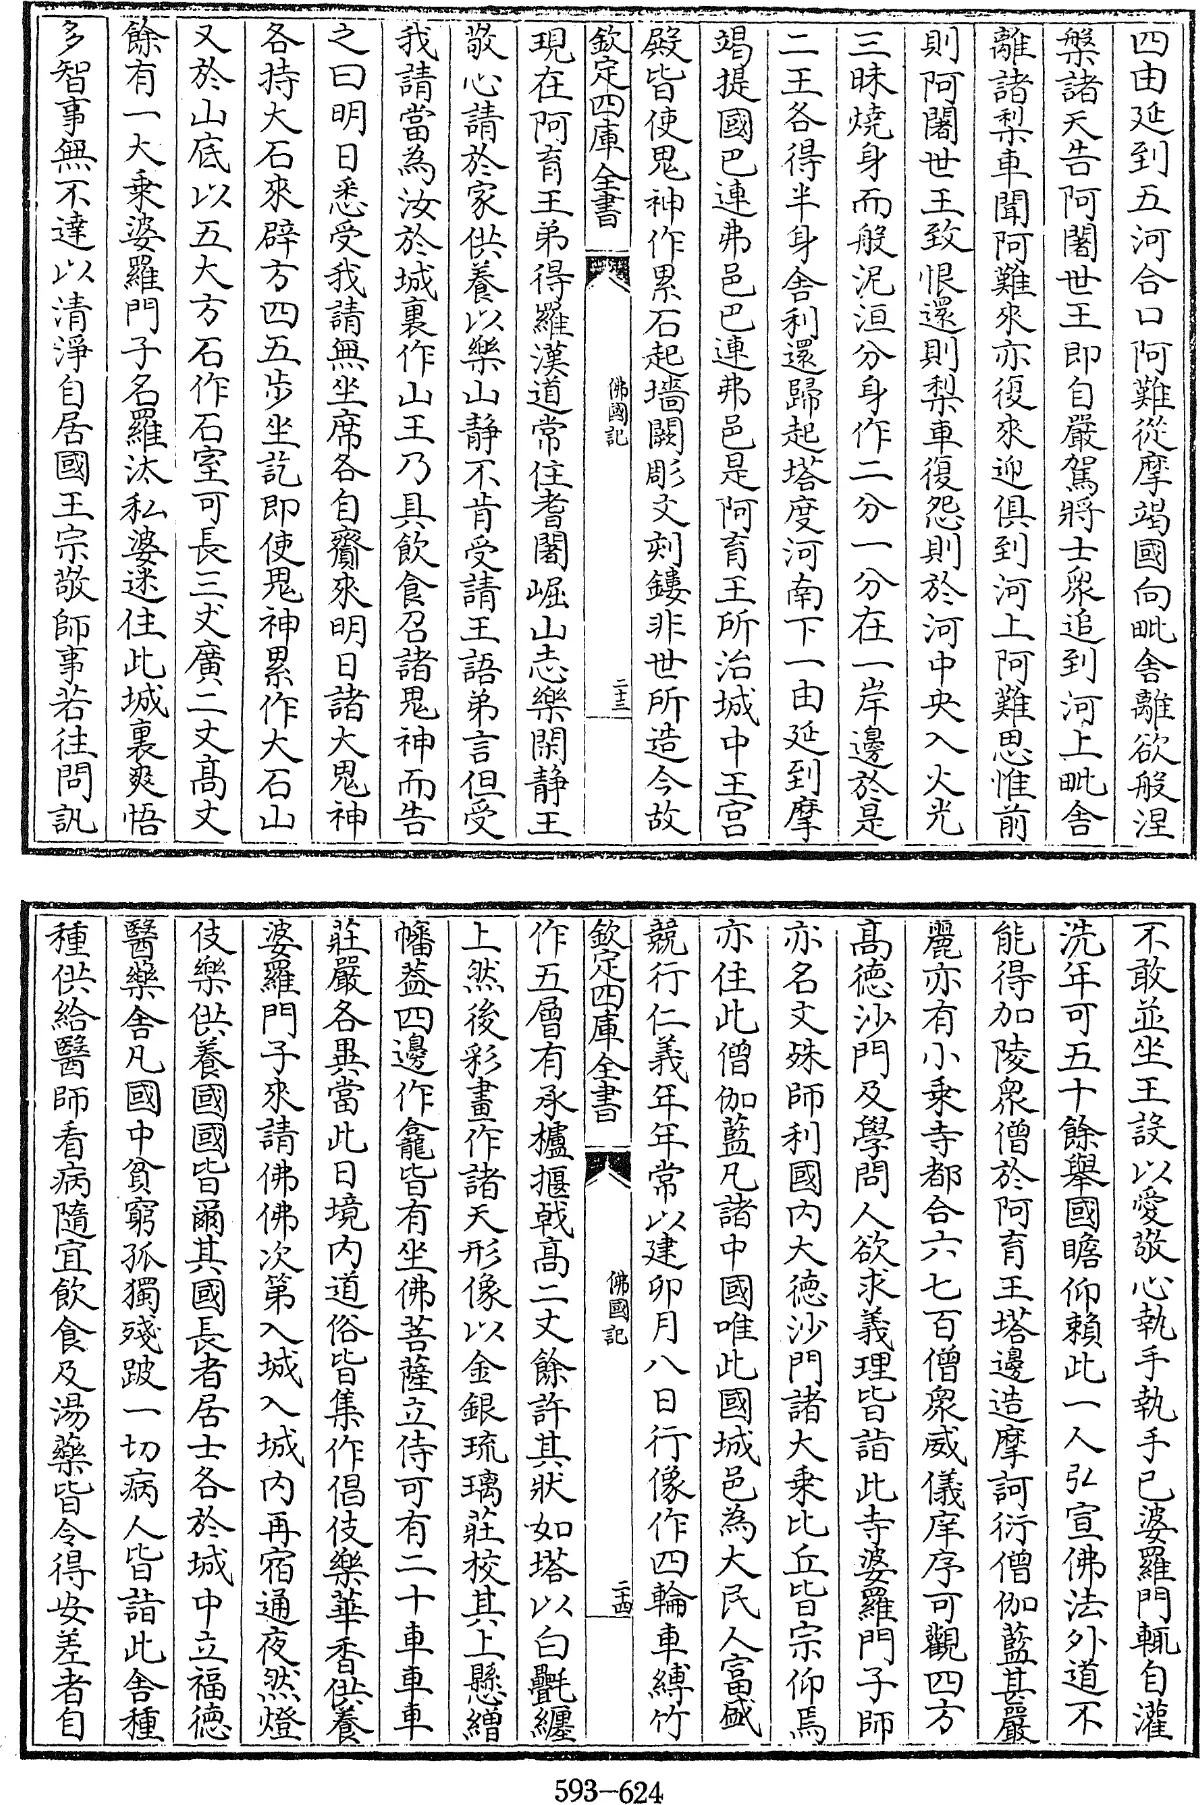 四由延到五河合口阿難從摩竭國向毗舍離欲般涅
槃諸天告阿闍世王即自嚴駕將士衆追到河上毗舍
離諸梨車聞阿難來亦復來迎俱到河上阿難思惟前
則阿闍世王致恨還則梨車復怨則於河中央入火光
三昧燒身而般泥洹分身作二分一分在一岸邊於是
二王各得半身舍利還歸起塔度河南下一由延到摩
竭提國巴連弗邑巴連弗邑是阿育王所治城中王宮
殿皆使鬼神作累石起墻闕彫文刻鏤非世所造今故
欽定四庫全書
佛國記
二十三
現在阿育王弟得羅漢道常住耆闍崛山志樂閑静王
敬心請於家供養以樂山静不肯受請王語弟言但受
我請當為汝於城裏作山王乃具飲食召諸鬼神而告
之曰明日悉受我請無坐席各自齎來明日諸大鬼神
各持大石來辟方四五步坐訖即使鬼神累作大石山
又於山底以五大方石作石室可長三丈廣二丈髙丈
餘有一大乘婆羅門子名羅汰私婆迷住此城裏爽悟
多智事無不達以清淨自居國王宗敬師事若往問訊
不敢並坐王設以愛敬心執手執手已婆羅門輒自灌
洗年可五十餘舉國瞻仰賴此一人弘宣佛法外道不
能得加陵衆僧於阿育王塔邊造摩訶衍僧伽藍甚嚴
麗亦有小乘寺都合六七百僧衆威儀庠序可觀四方
髙德沙門及學問人欲求義理皆詣此寺婆羅門子師
亦名文殊師利國内大德沙門諸大乘比丘皆宗仰焉
亦住此僧伽藍凡諸中國唯此國城邑為大民人富盛
競行仁義年年常以建卯月八日行像作四輪車縛竹
欽定四庫全書
佛國記
二十四
作五層有承櫨揠戟髙二丈餘許其狀如塔以白氎纒
上然後彩畫作諸天形像以金銀琉璃莊校其上懸繒
幡葢四邊作龕皆有坐佛菩薩立侍可有二十車車車
莊嚴各異當此日境内道俗皆集作倡伎樂華香供養
婆羅門子來請佛佛次第入城入城内再宿通夜然燈
伎樂供養國國皆爾其國長者居士各於城中立福德
醫藥舍凡國中貧窮孤獨殘跛一切病人皆詣此舍種
種供給醫師看病隨宜飲食及湯藥皆令得安差者自
593-624